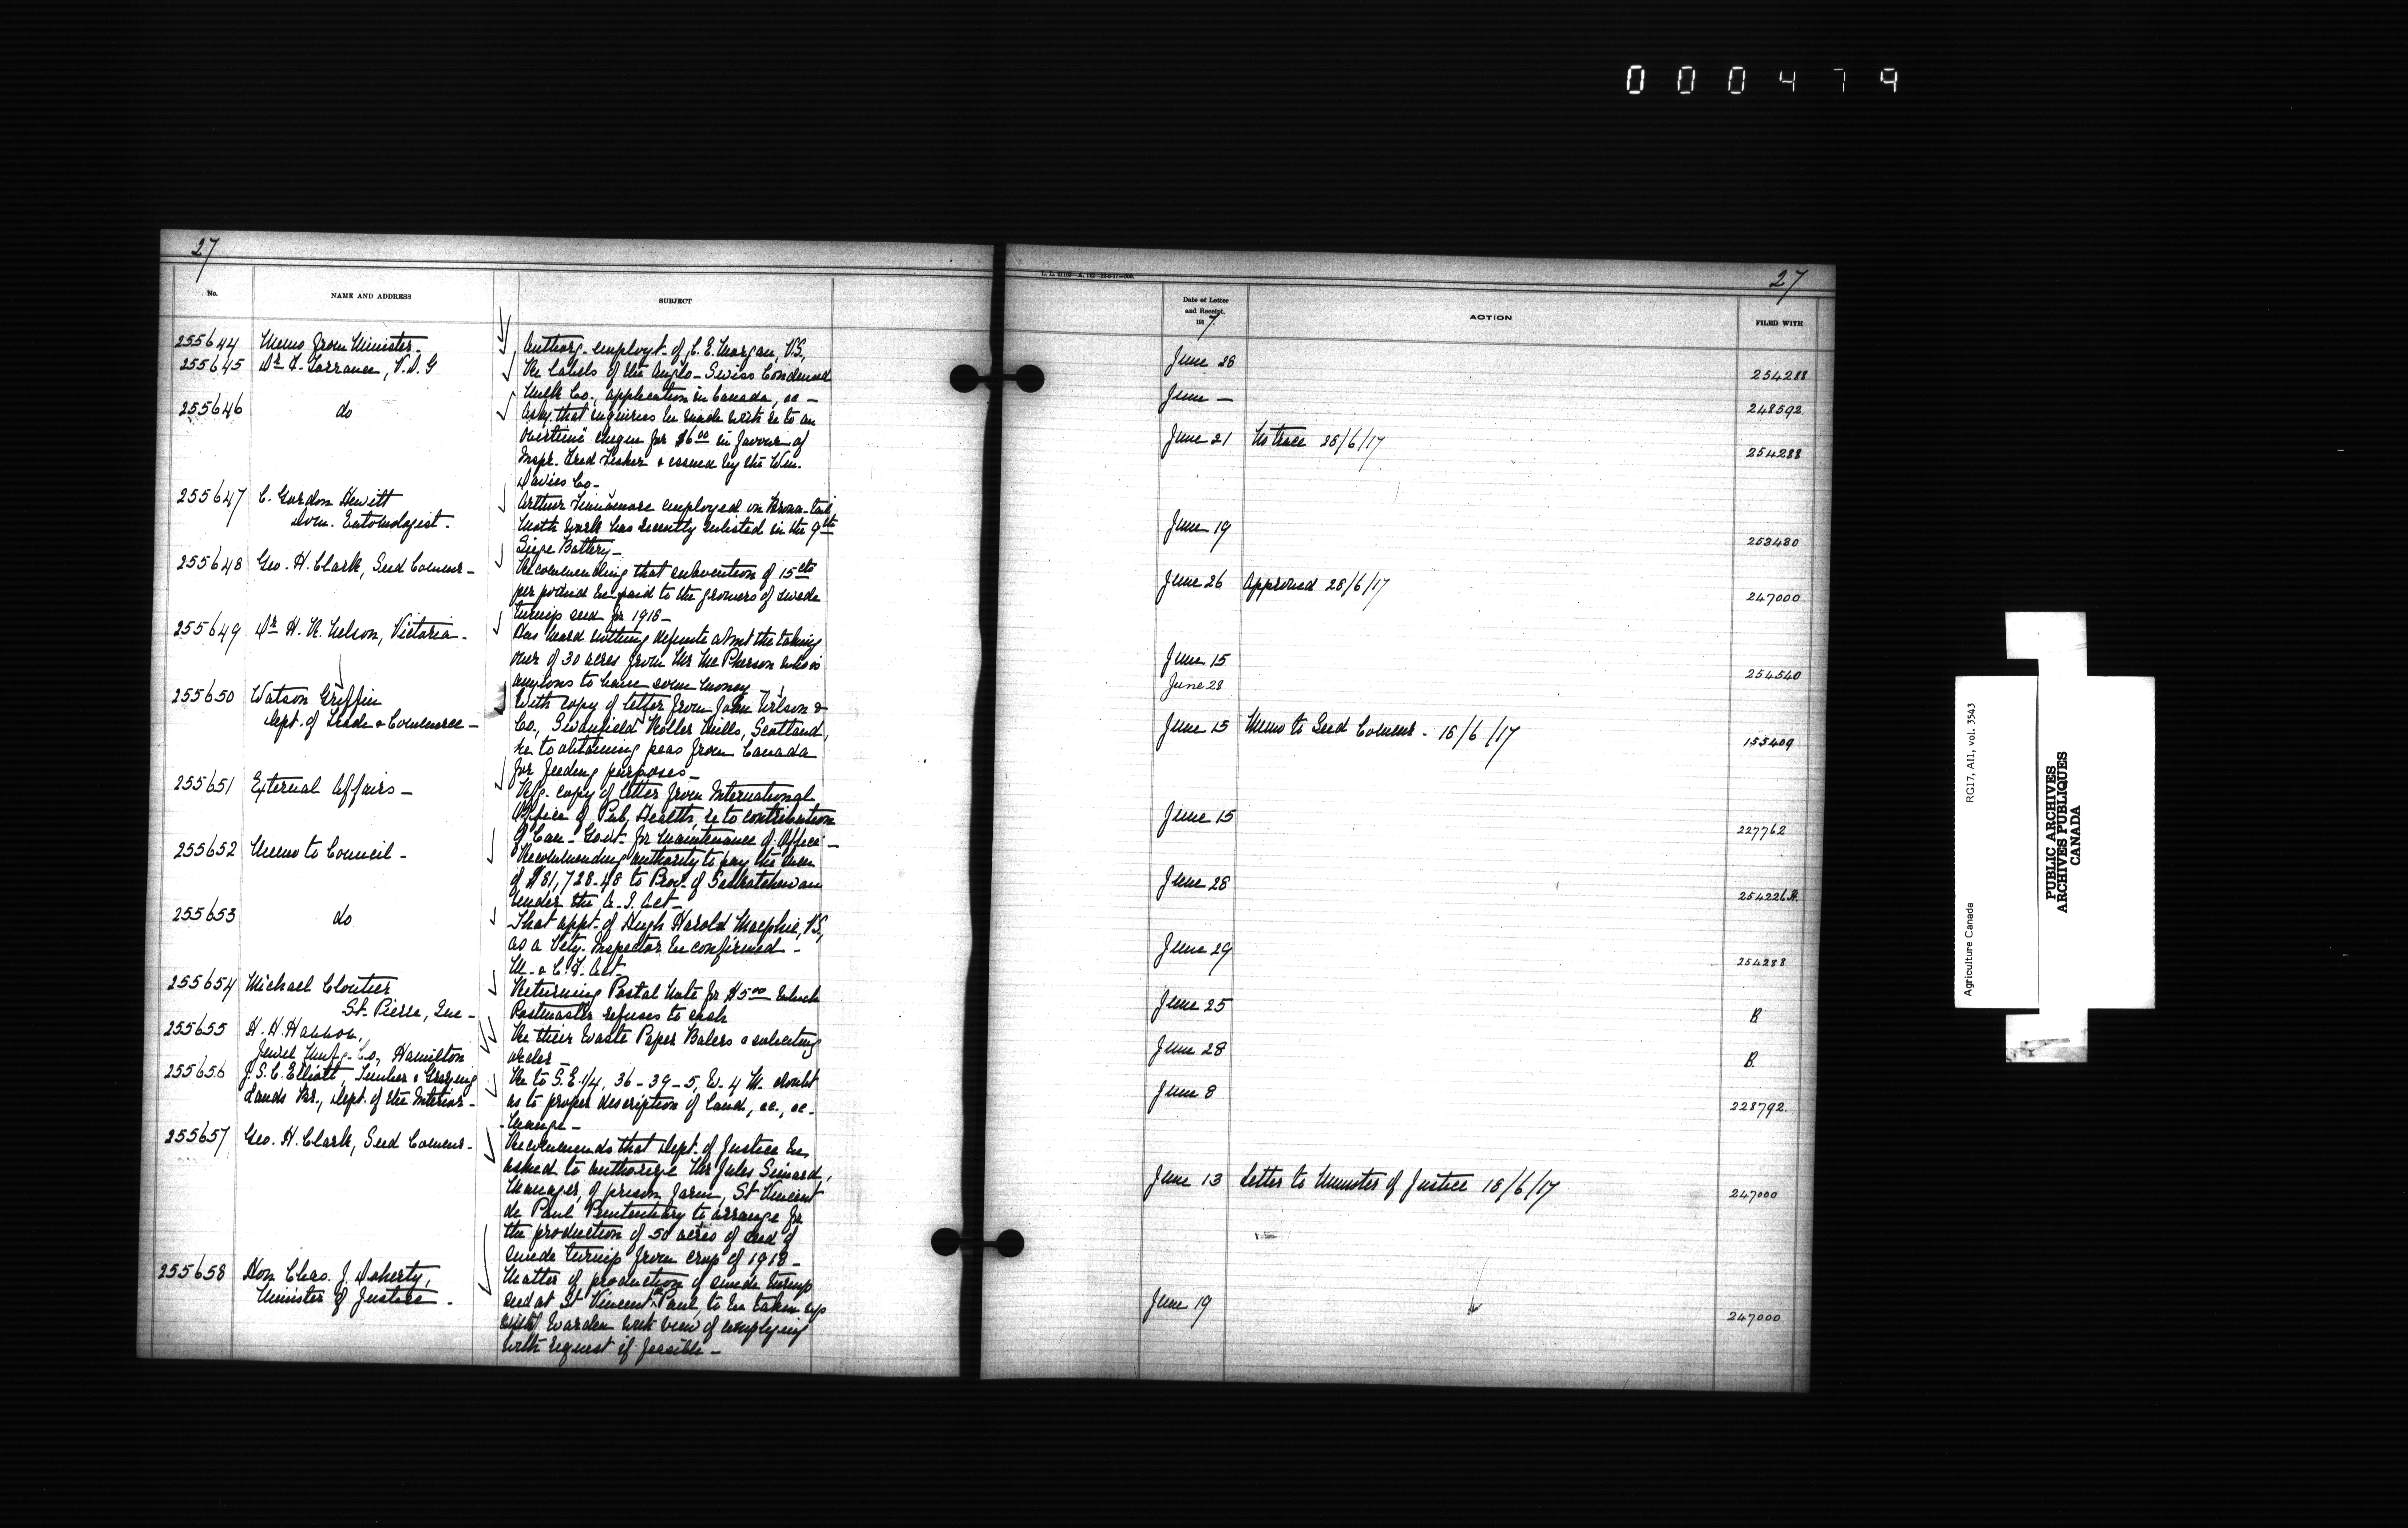 000479
27
No.
NAME AND ADDRESS
SUBJECT
255644 Memo from Minister - Authorg. employt. of C. E. Morgan, V.S.,
255645 Dr F. Torrance, V.D.G Re labels of the Anglo-Swiss Condensed
Milk Co., application in Canada, &c -
255646 do Asks that inquiries be made with re to an
overtime cheque for $6.00 in favour of
Inspr. Fred Fisher & issued by the Wm.
Davies Co-
255647 C. Gordon Hewitt Arthur Finnamore employed on Brown-tail
Dom. Entomologist. Moth work has recently enlisted in the 9th
Siege Battery-
255648 Geo. H. Clark, Seed Commr - Recommending that subvention of 15 cts
per pound be paid to the growers of swede
turnip seed for 1918-
255649 Dr H. R. Nelson, Victoria - Has heard nothing definite about the taking
over of 30 acres from Mr McPherson who is
anxious to have some money -
255650 Watson Griffin With copy of letter from John Wilson &
Dept. of Trade & Commerce - Co., Swanfield Roller Mills, Scotland,
re to obtaining peas from Canada
for feeding purposes-
255651 External Affairs - copy of letter from International
Office of Pub. Health, re to contribution
of Can. Govt. for maintenance of Office -
255652 Memo to Council - Recommending authority to pay the sum
of $81,728.48 to Prov. of Saskatchewan
under the A. I. Act-
255653 do That appt. of Hugh Harold Macphie, V.S.,
as a Vety. Inspector be confirmed -
M. & C. F. Act-
255654 Michael Cloutier Returning Postal Note for $5.00 which
St. Pierre, Que - Postmaster refuses to cash
255655 H. H. Hannon, Re their Waste Paper Balers & soliciting
Jewel Manfg. Co, Hamilton order -
255656 J. S. C. Elliott, Timber & Grazing Re to S.E. 1/4, 36-39-5, W. 4 M. doubt
Lands Br., Dept. of the Interior - as to proper description of land, &c., &c.
255657 Geo. H. Clark, Seed Commr - Recommends that Dept. of Justice be
asked to authorize Mr Jules Simard,
Manager, of prison farm, St Vincent
de Paul Penitentiary to arrange for
the production of 50 acres of seed of
swede turnip from crop of 1918-
255658 Hon. Chas. J. Doherty, Matter of production of swede turnip
Minister of Justice - seed at St Vincent de Paul, to be taken up
with Warden with view of complying
with request if feasible -
27
Date of Letter
and Receipt.
1917
ACTION
FILED WITH
June 28 254288
June - 248592
June 21 No trace 28/6/17 254288
June 19 253480
June 26 Approved 28/6/17 247000
June 15 254540
June 28
June 15 Memo to Seed Commr - 18/6/17 155409
June 15 227762
June 28 254226
June 29 254288
June 25 B
June 28 B.
June 8 228792.
June 13 Letter to Minister of Justice 18/6/17 247000
June 19 247000
Agriculture Canada RG17, AII, vol. 3543
PUBLIC ARCHIVES
ARCHIVES PUBLIQUES
CANADA